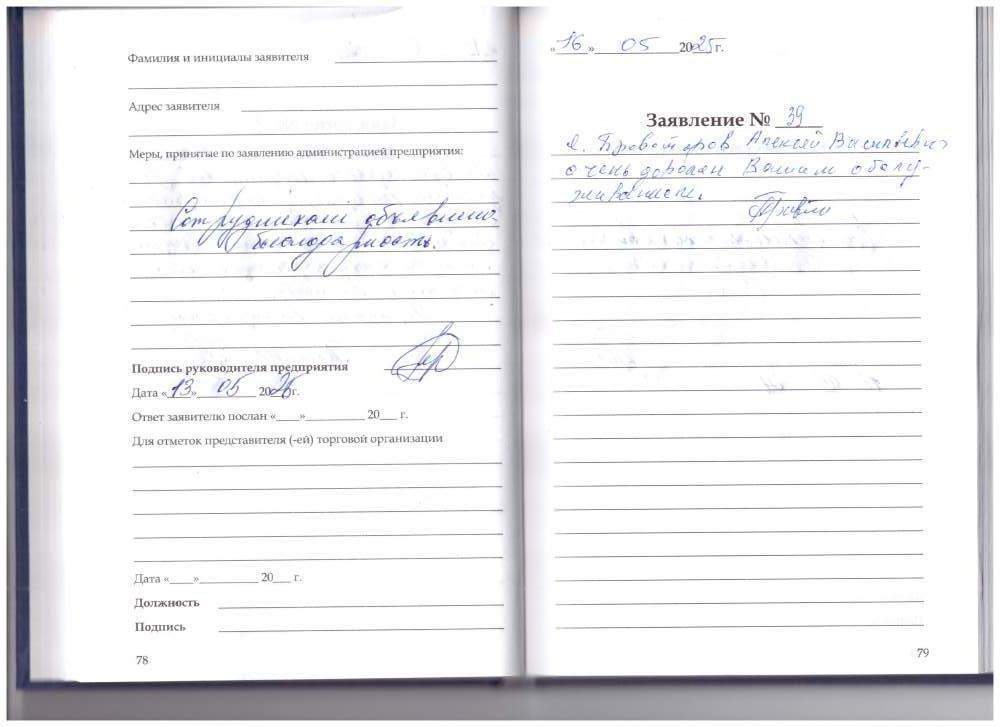 Фамилия и инициалы заявителя
Адрес заявителя
Меры, принятые по заявлению администрацией предприятия:
Сотрудникам объявлена
благодарность.
Подпись руководителя предприятия
Дата «13» 05 2025г.
Ответ заявителю послан «____»__________ 20___ г.
Для отметок представителя (-ей) торговой организации
Дата «____»__________ 20___ г.
Должность
Подпись
78
«16» 05 2025г.
Заявление № 39
Я. Алексей Васильевич
очень Вашим обслу-
живанием.
79